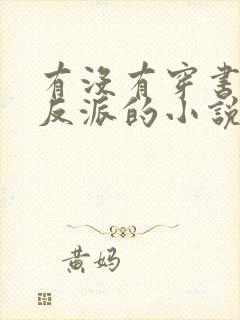 有沒有穿書
反派的小說
黄妈